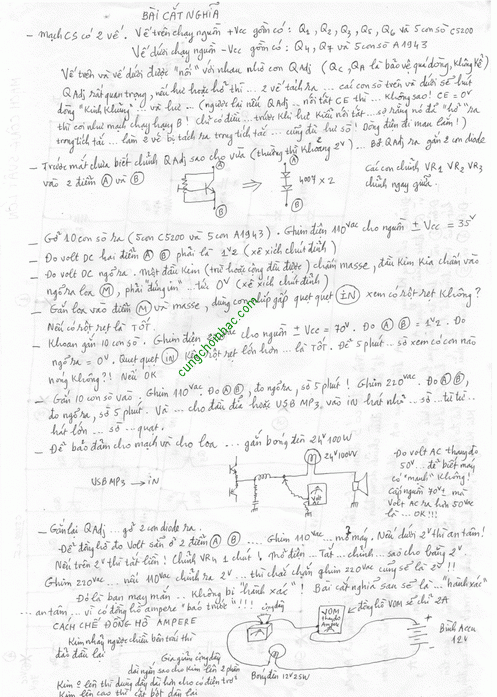 BÀI CẮT NGHĨA
– Mạch CS có 2 vế. Vế trên chạy nguồn +Vcc gồm có: Q1, Q2, Q3, Q5, Q6 và 5 con số C5200
Vế dưới chạy nguồn –Vcc gồm có: Q4, Q7 và 5 con số A1943
Vế trên và vế dưới được "nối" với nhau nhờ con QAdj
QAdj rất quan trọng, nếu hư hoặc hở thì ... 2 vế tách ra ... các con sò trên và dưới sẽ hút
dòng "Kinh Khủng" ... và hư ... (ngược lại nếu QAdj ... nối tắt CE thì ... Không sao! CE = 0V
thì coi như mạch chạy hạng B!
– Trước mắt chưa biết chỉnh QAdj sao cho vừa (thường thì Khoảng 2V) ... Bỏ QAdj ra gắn 2 con diode
vào 2 điểm A và B
A
B
⇒
A
4007 x 2
B
Các con chỉnh VR1 VR2 VR3
chỉnh ngay giữa.
– Gỡ 10 con sò ra (5 con C5200 và 5 con A1943). Ghim điện 110VAC cho nguồn ± Vcc = 35V
– Đo volt DC hai điểm A B phải là 1V2 (xê xích chút đỉnh)
– Đo volt DC ngõ ra. một đầu Kim (trừ hoặc cộng đều được) chấm masse, đầu Kim Kia chấm vào
ngõ ra loa M, phải "đúng in" ... tức 0V (xê xích chút đỉnh)
– Gắn loa vào điểm M và masse, dùng con nhíp gắp quẹt quẹt IN xem có rột rẹt Không?
Nếu có rột rẹt là TỐT.
– Khoan gắn 10 con sò. Ghim điện cho nguồn ± Vcc = 70V. Đo A B = 1V2. Đo
ngõ ra = 0V. Quẹt quẹt IN Kêu rột rẹt lớn hơn ... là TỐT. Để 5 phút ... sờ xem có con nào
nóng Không?! Nếu OK
– Gắn 10 con sò vào. Ghim 110VAC. Đo A B, đo ngõ ra, sờ 5 phút! Ghim 220VAC. Đo A B,
đo ngõ ra, sờ 5 phút. Và ... cho đầu đĩa hoặc USB MP3 vào IN hát nhỏ ... sờ ... từ từ ..
hát lớn ... sờ ... quạt.
– Để bảo đảm cho mạch và cho loa ... gắn bóng đèn 24V 100W
24V 100W
USB MP3 → IN
Đo volt AC thay đổi
50V ... để biết máy
có "mạnh" Không!
Cái nguồn 70V mà
Volt AC ra hơn 50VAC
là ... OK!!!
– Gắn lại QAdj ... gỡ 2 con diode ra.
Để đồng hồ đo Volt sẵn ở 2 điểm A B .... Ghim 110VAC ... mở máy. Nếu dưới 2V thì an tâm!
Nếu trên 2V thì tắt liền! Chỉnh VR4 1 chút ... Tắt ... chỉnh ... sao cho bằng 2V.
Ghim 220VAC ... nếu 110VAC chỉnh ra 2V ... thì chắc chắn ghim 220VAC cũng sẽ là 2V!!
Đó là bạn may mắn .. Không bị "hành xác"! Bài cắt nghĩa sau sẽ là ... "hành xác"
... an tâm ... vì có đồng hồ ampere "báo trước"!!!
CÁCH CHẾ ĐỒNG HỒ AMPERE
Kim nhảy ngược chiều bên trái thì
đảo đầu lại
cọng dây
VOM
thang đo
Ampere
đồng hồ VOM sẽ chỉ 2A
Bình Accu
12V
Bóng đèn 12V 25W
Gia giảm cọng dây
dài ngắn sao cho Kim lên 2 phân
Kim ít lên thì dùng dây dài hơn cho có điện trở
Kim lên cao thì cắt bớt dần lại
cungchoinhac.com